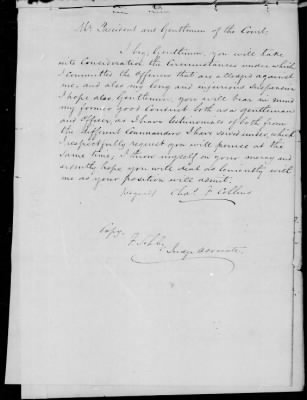 Mr President and Gentlemen of the Court;
I beg, Gentlemen, you will take
into consideration the circumstances under which
I committed the offences that are alleged against
me, and also my long and injurious suspension
I hope also Gentlemen, you will bear in mind
my former good conduct both as a gentleman
and Officer, as I have testimonials of both from
the different Commanders I have served under, which
I respectfully request you will peruse at the
same time; I throw myself on your mercy and
ardently hope you will deal as leniently with
me as your position will admit.
(signed) Chas. F. Collins
Copy.
Judge Advocate.